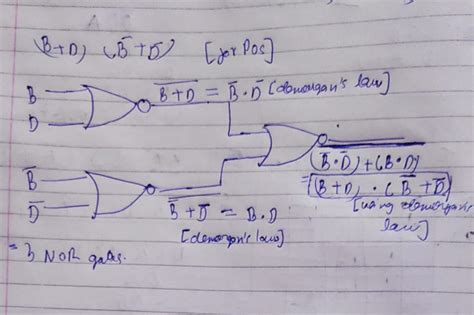 (B+D) (B̅+D̅) [for POS]
B
D
\overline{B+D} = B̅·D̅ [demorgan's law]
\overline{(B̅·D̅)+(B·D)}
= (B+D)·(B̅+D̅)
[using demorgan's law]
B̅
D̅
\overline{B̅+D̅} = B·D
[demorgan's law]
= 3 NOR gates.